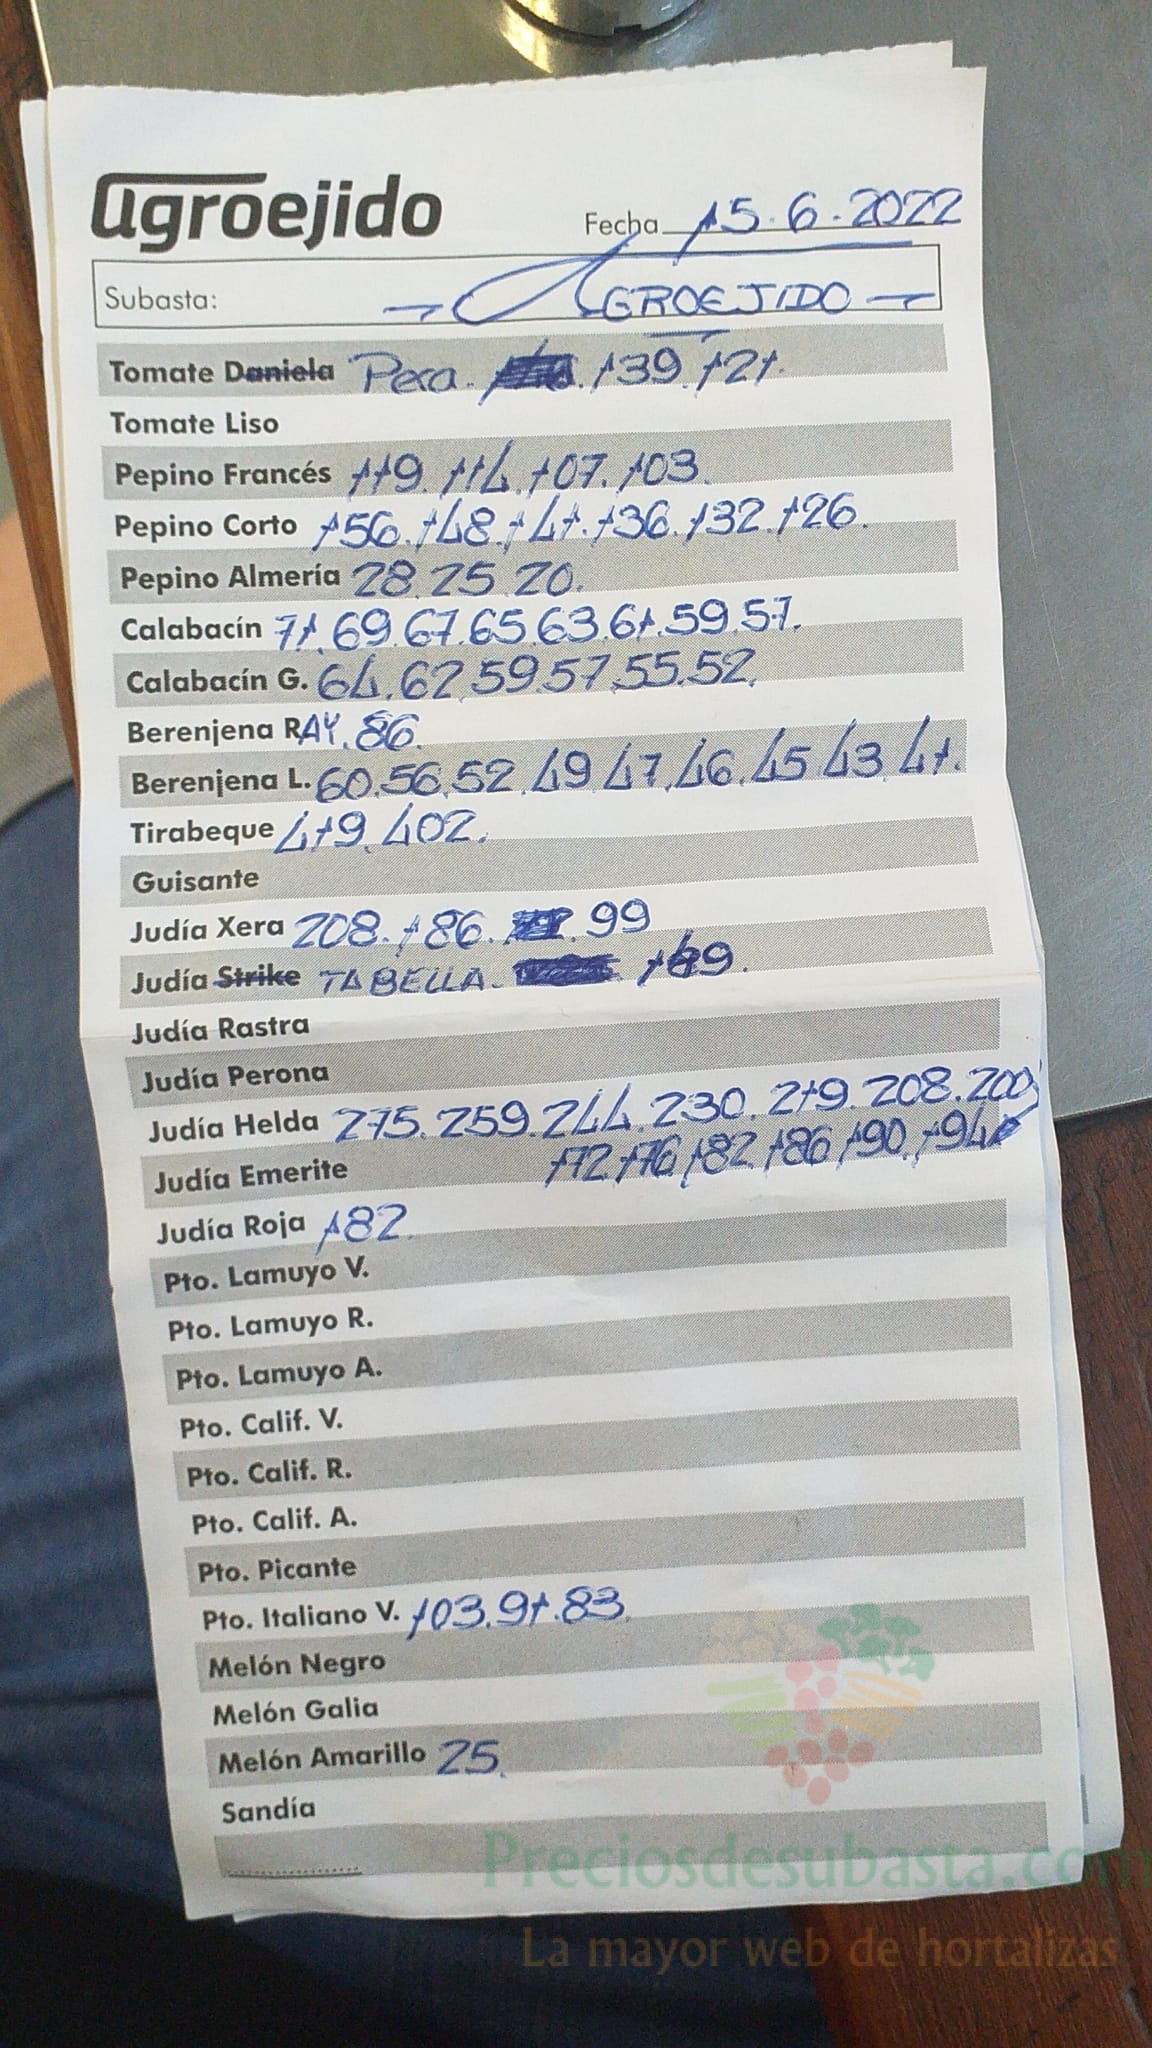 agroejido
Fecha 15.6.2022
Subasta: AGROEJIDO
Tomate Daniela Pera. 139.121.
Tomate Liso
Pepino Francés 119.114.107.103.
Pepino Corto 156.148.141.136.132.126.
Pepino Almería 28.25.20.
Calabacín 71.69.67.65.63.61.59.57.
Calabacín G. 64.62.59.57.55.52.
Berenjena RAY.86.
Berenjena L. 60.56.52.49.47.46.45.43.41.
Tirabeque 419.402.
Guisante
Judía Xera 208.186. 99
Judía Strike TABELLA.
Judía Rastra
Judía Perona
Judía Helda 275.259.244.230.219.208.200
Judía Emerite 172.176.182.186.190.194
Judía Roja 182.
Pto. Lamuyo V.
Pto. Lamuyo R.
Pto. Lamuyo A.
Pto. Calif. V.
Pto. Calif. R.
Pto. Calif. A.
Pto. Picante
Pto. Italiano V. 103.91.83.
Melón Negro
Melón Galia
Melón Amarillo 25.
Sandía
Preciosdesubasta.com
La mayor web de hortalizas